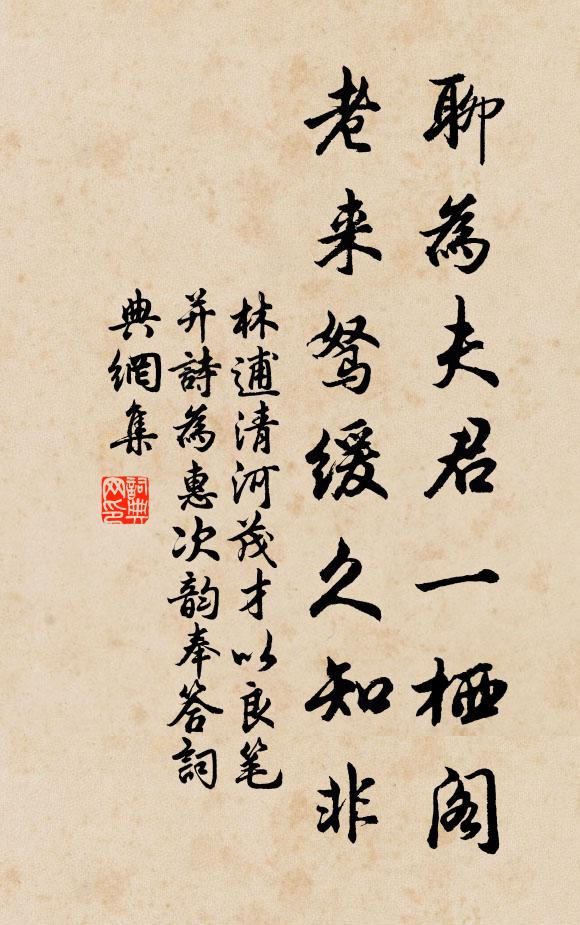 聊為夫君一栖阁
老来駑緩久知非
林逋清河茂才以良笔
并詩為惠次韵奉答詞
典網集
詞典网印